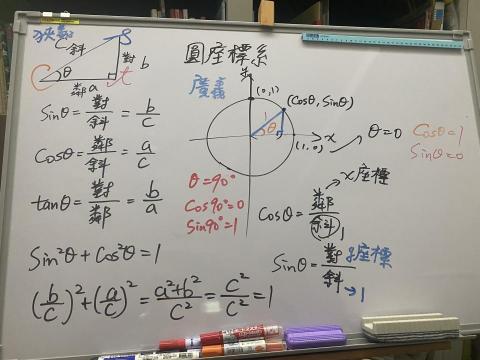 狹義
C 斜 S
對 b
θ
鄰 a t
C
Sinθ = 對/斜 = b/c
Cosθ = 鄰/斜 = a/c
tanθ = 對/鄰 = b/a
Sin²θ + Cos²θ = 1
(b/c)² + (a/c)² = (a²+b²)/c² = c²/c² = 1
圓座標系
廣義
y
(0,1)
(Cosθ, Sinθ)
1
θ
x
(1,0)
θ=0
Cosθ=1
Sinθ=0
θ=90°
Cos90°=0
Sin90°=1
Cosθ = 鄰/斜 → x座標
1
Sinθ = 對/斜 y座標
→1